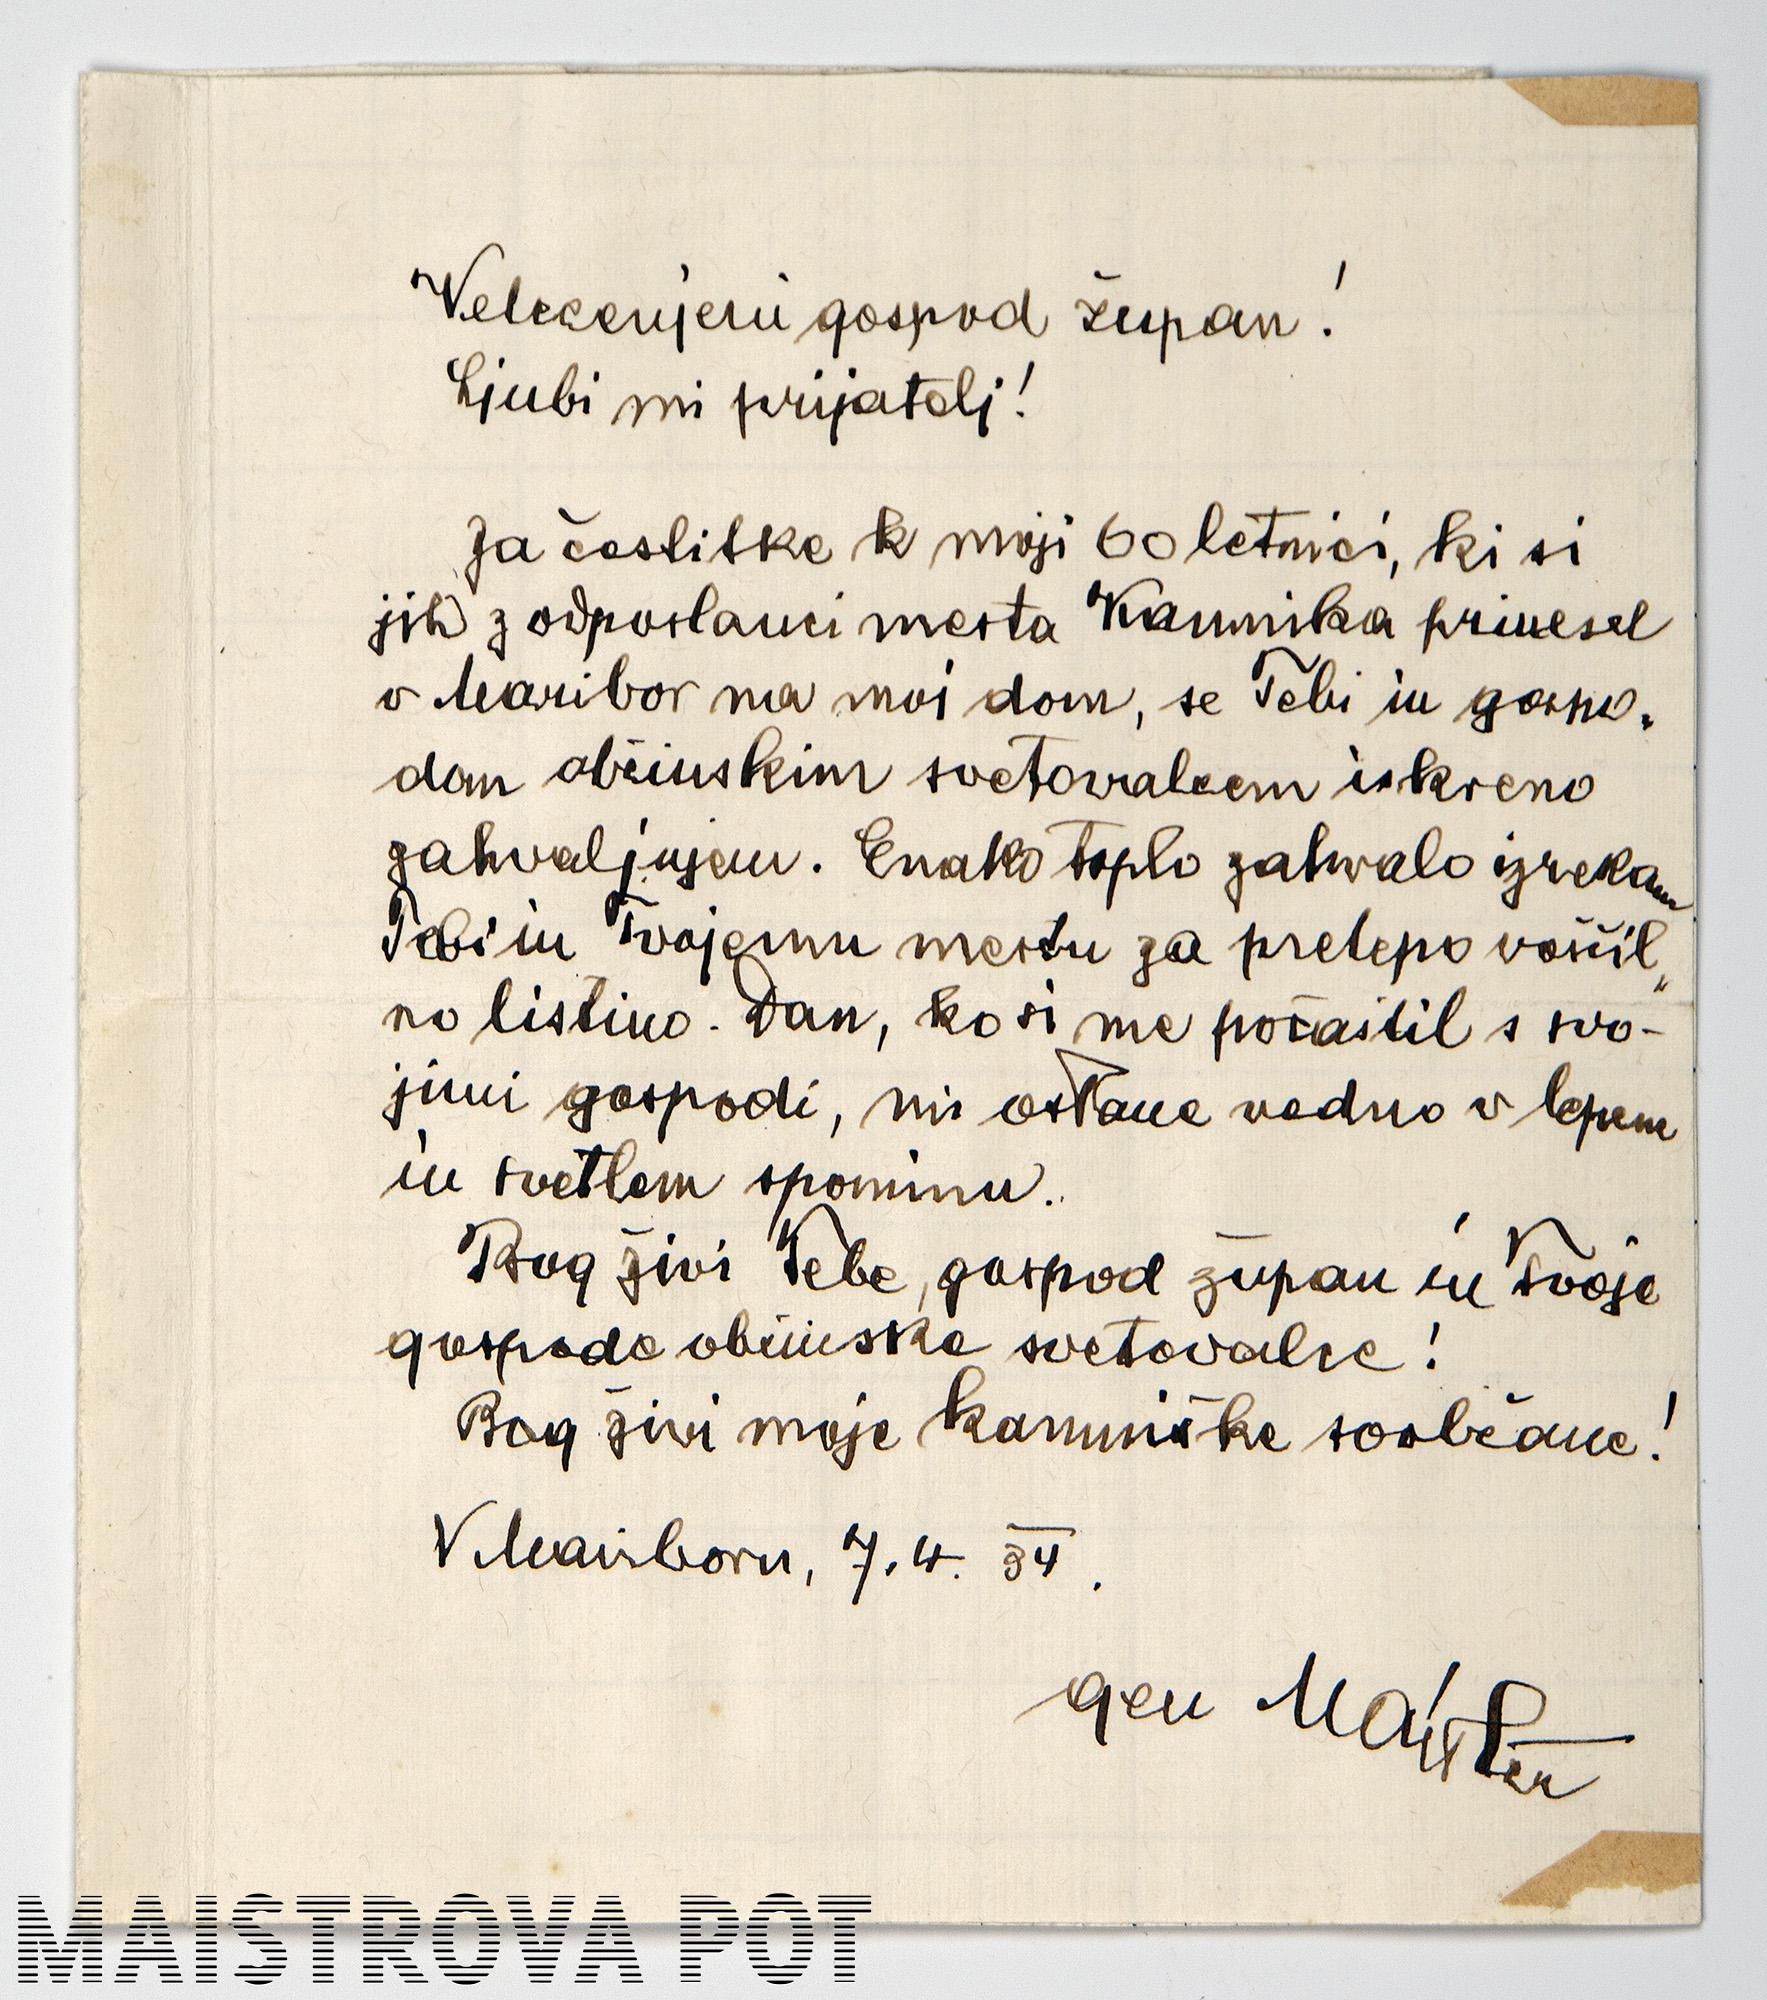 Velecenjeni gospod župan!
Ljubi mi prijatelj!
Za čestitke k moji 60 letnici, ki si
jih z odposlanci mesta Kamnika prinesel
v Maribor na moj dom, se Tebi in gospo-
dom občinskim svetovalcem iskreno
zahvaljujem. Enako toplo zahvalo izrekam
Tebi in Tvojemu mestu za prelepo voščil-
no listino. Dan, ko si me počastil s svo-
jimi gospodi, mi ostane vedno v lepem
in svetlem spominu.
Bog živi Tebe, gospod župan in Tvoje
gospode občinske svetovalce!
Bog živi moje kamniške soobčane!
V Mariboru, 7.4. 34.
gen Maister
MAISTROVA POT